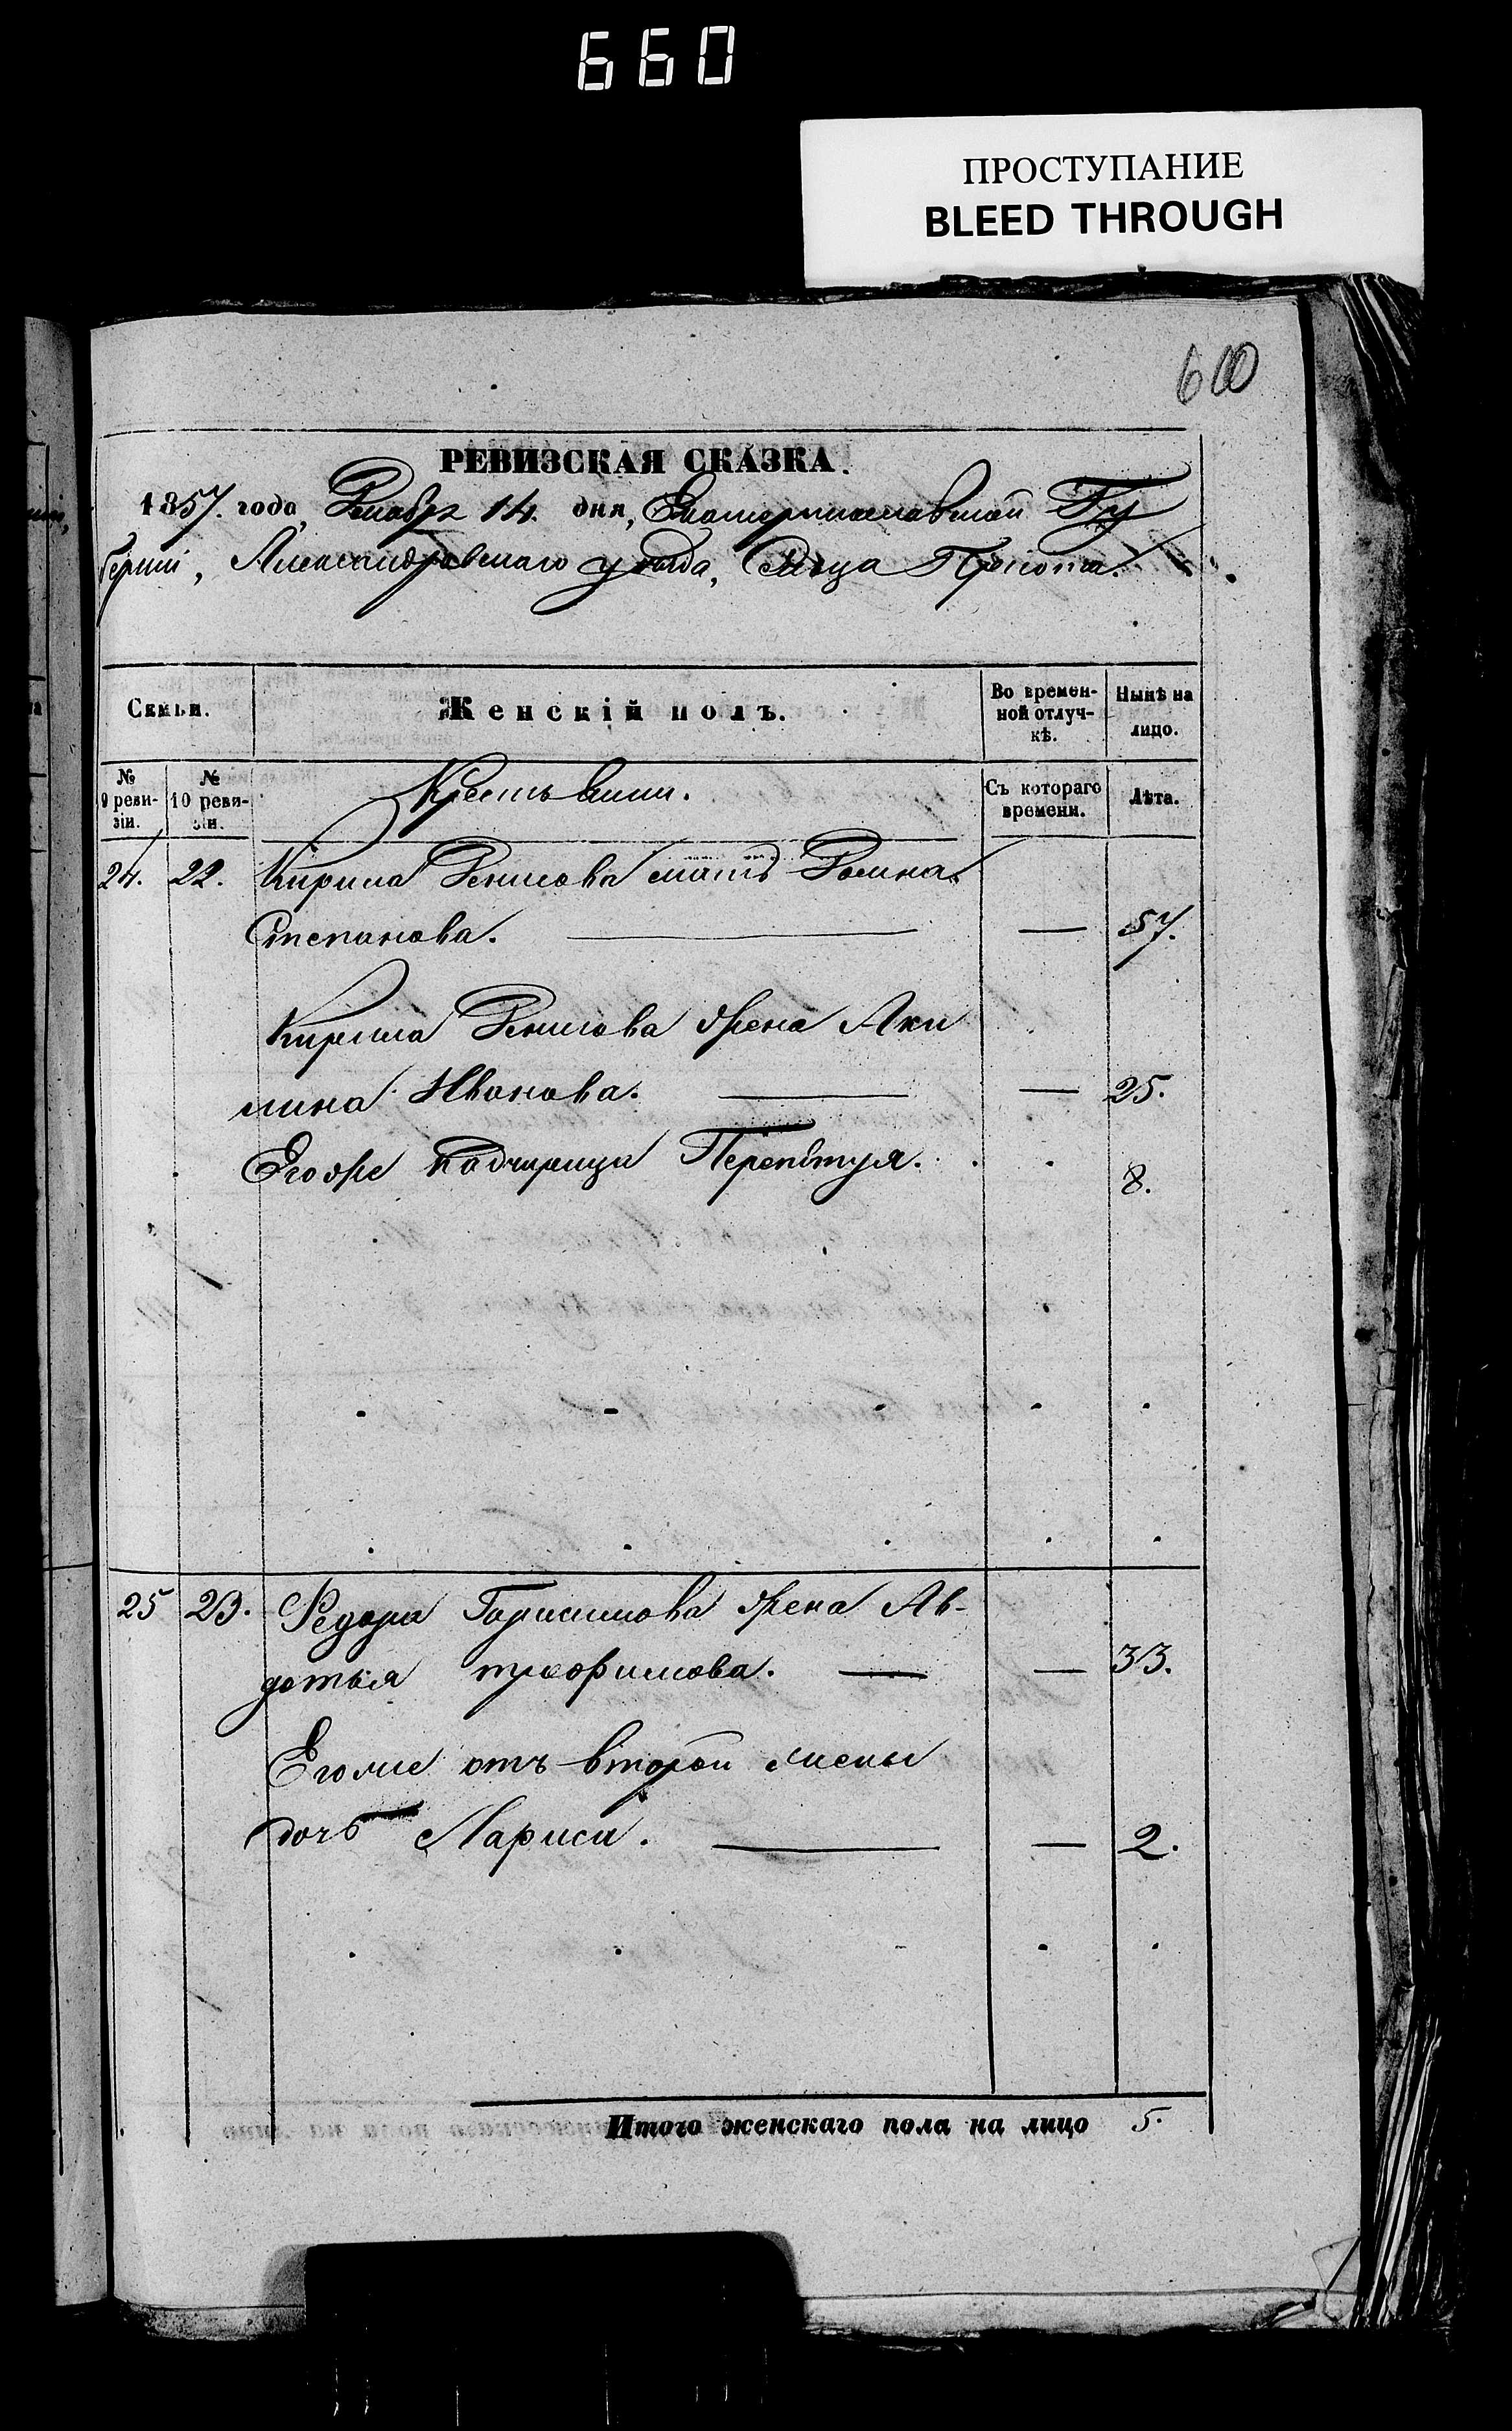 660
ПРОСТУПАНИЕ
BLEED THROUGH
РЕВИЗСКАЯ СКАЗКА.
1857. года, Декабря 14. дня, Екатеринославской Гу
берніи, Александровскаго уѣзда, Сельца
Семьи.
Женскій полъ.
Во времен-
ной отлуч-
кѣ.
Нынѣ на
лицо.
№
9 реви-
зіи.
№
10 реви-
зіи.
Крестьяни.
Съ котораго
времени.
Лѣта.
24. 22. Кирила Денисова мать Домна
Степанова. — 57.
Кирила Денисова жена Аки
лина Иванова. — 25.
Егоже падчирица Перепѣтуя. 8.
25 23. Федора Гарисимова жена Ав-
дотья трофимова. — 33.
Егоже отъ второй жены
дочь Лариса. — 2.
Итого женскаго пола на лицо 5.